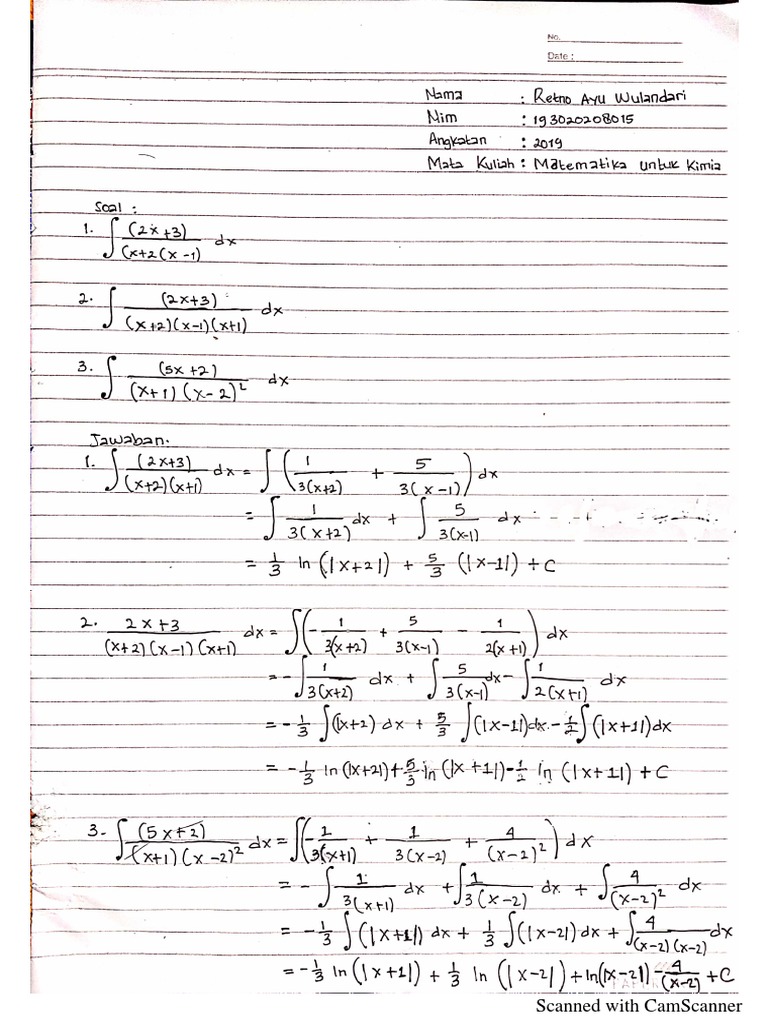 No.
Date :
Nama : Retno Ayu Wulandari
Nim : 193020208015
Angkatan : 2019
Mata Kuliah : Matematika untuk Kimia
Soal :
1. ∫ (2x+3)/(x+2(x-1) dx
2. ∫ (2x+3)/(x+2)(x-1)(x+1) dx
3. ∫ (5x+2)/(x+1)(x-2)² dx
Jawaban.
1. ∫ (2x+3)/(x+2)(x+1) dx = ∫ (1/3(x+2) + 5/3(x-1)) dx
= ∫ 1/3(x+2) dx + ∫ 5/3(x-1) dx
= 1/3 ln (|x+2|) + 5/3 (|x-1|) + C
2. 2x+3/(x+2)(x-1)(x+1) dx = ∫ (-1/3(x+2) + 5/3(x-1) - 1/2(x+1)) dx
= -∫ 1/3(x+2) dx + ∫ 5/3(x-1) dx - ∫ 1/2(x+1) dx
= -1/3 ∫(|x+2) dx + 5/3 ∫(|x-1|) dx - 1/2 ∫(|x+1|) dx
= -1/3 ln (|x+2|) + 5/3 ln (|x+1|) - 1/2 ln (|x+1|) + C
3- ∫ (5x+2)/(x+1)(x-2)² dx = ∫ (1/3(x+1) + 1/3(x-2) + 4/(x-2)²) dx
= - ∫ 1/3(x+1) dx + ∫ 1/3(x-2) dx + ∫ 4/(x-2)² dx
= -1/3 ∫(|x+1|) dx + 1/3 ∫(|x-2|) dx + ∫ 4/(x-2)(x-2) dx
= -1/3 ln (|x+1|) + 1/3 ln (|x-2|) + ln(|x-2|) - 4/(x-2) + C
Scanned with CamScanner